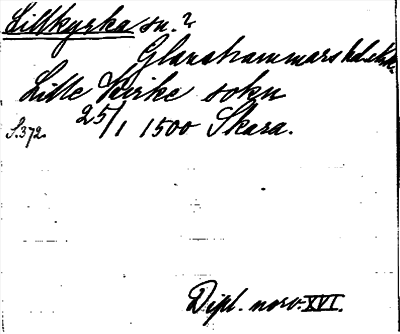 Lillkyrka sn. ?
Glanshammars hd.
Lille Kirke sokn
S.372. 25/1 1500 Skara.
Dipl. norv. XVI.